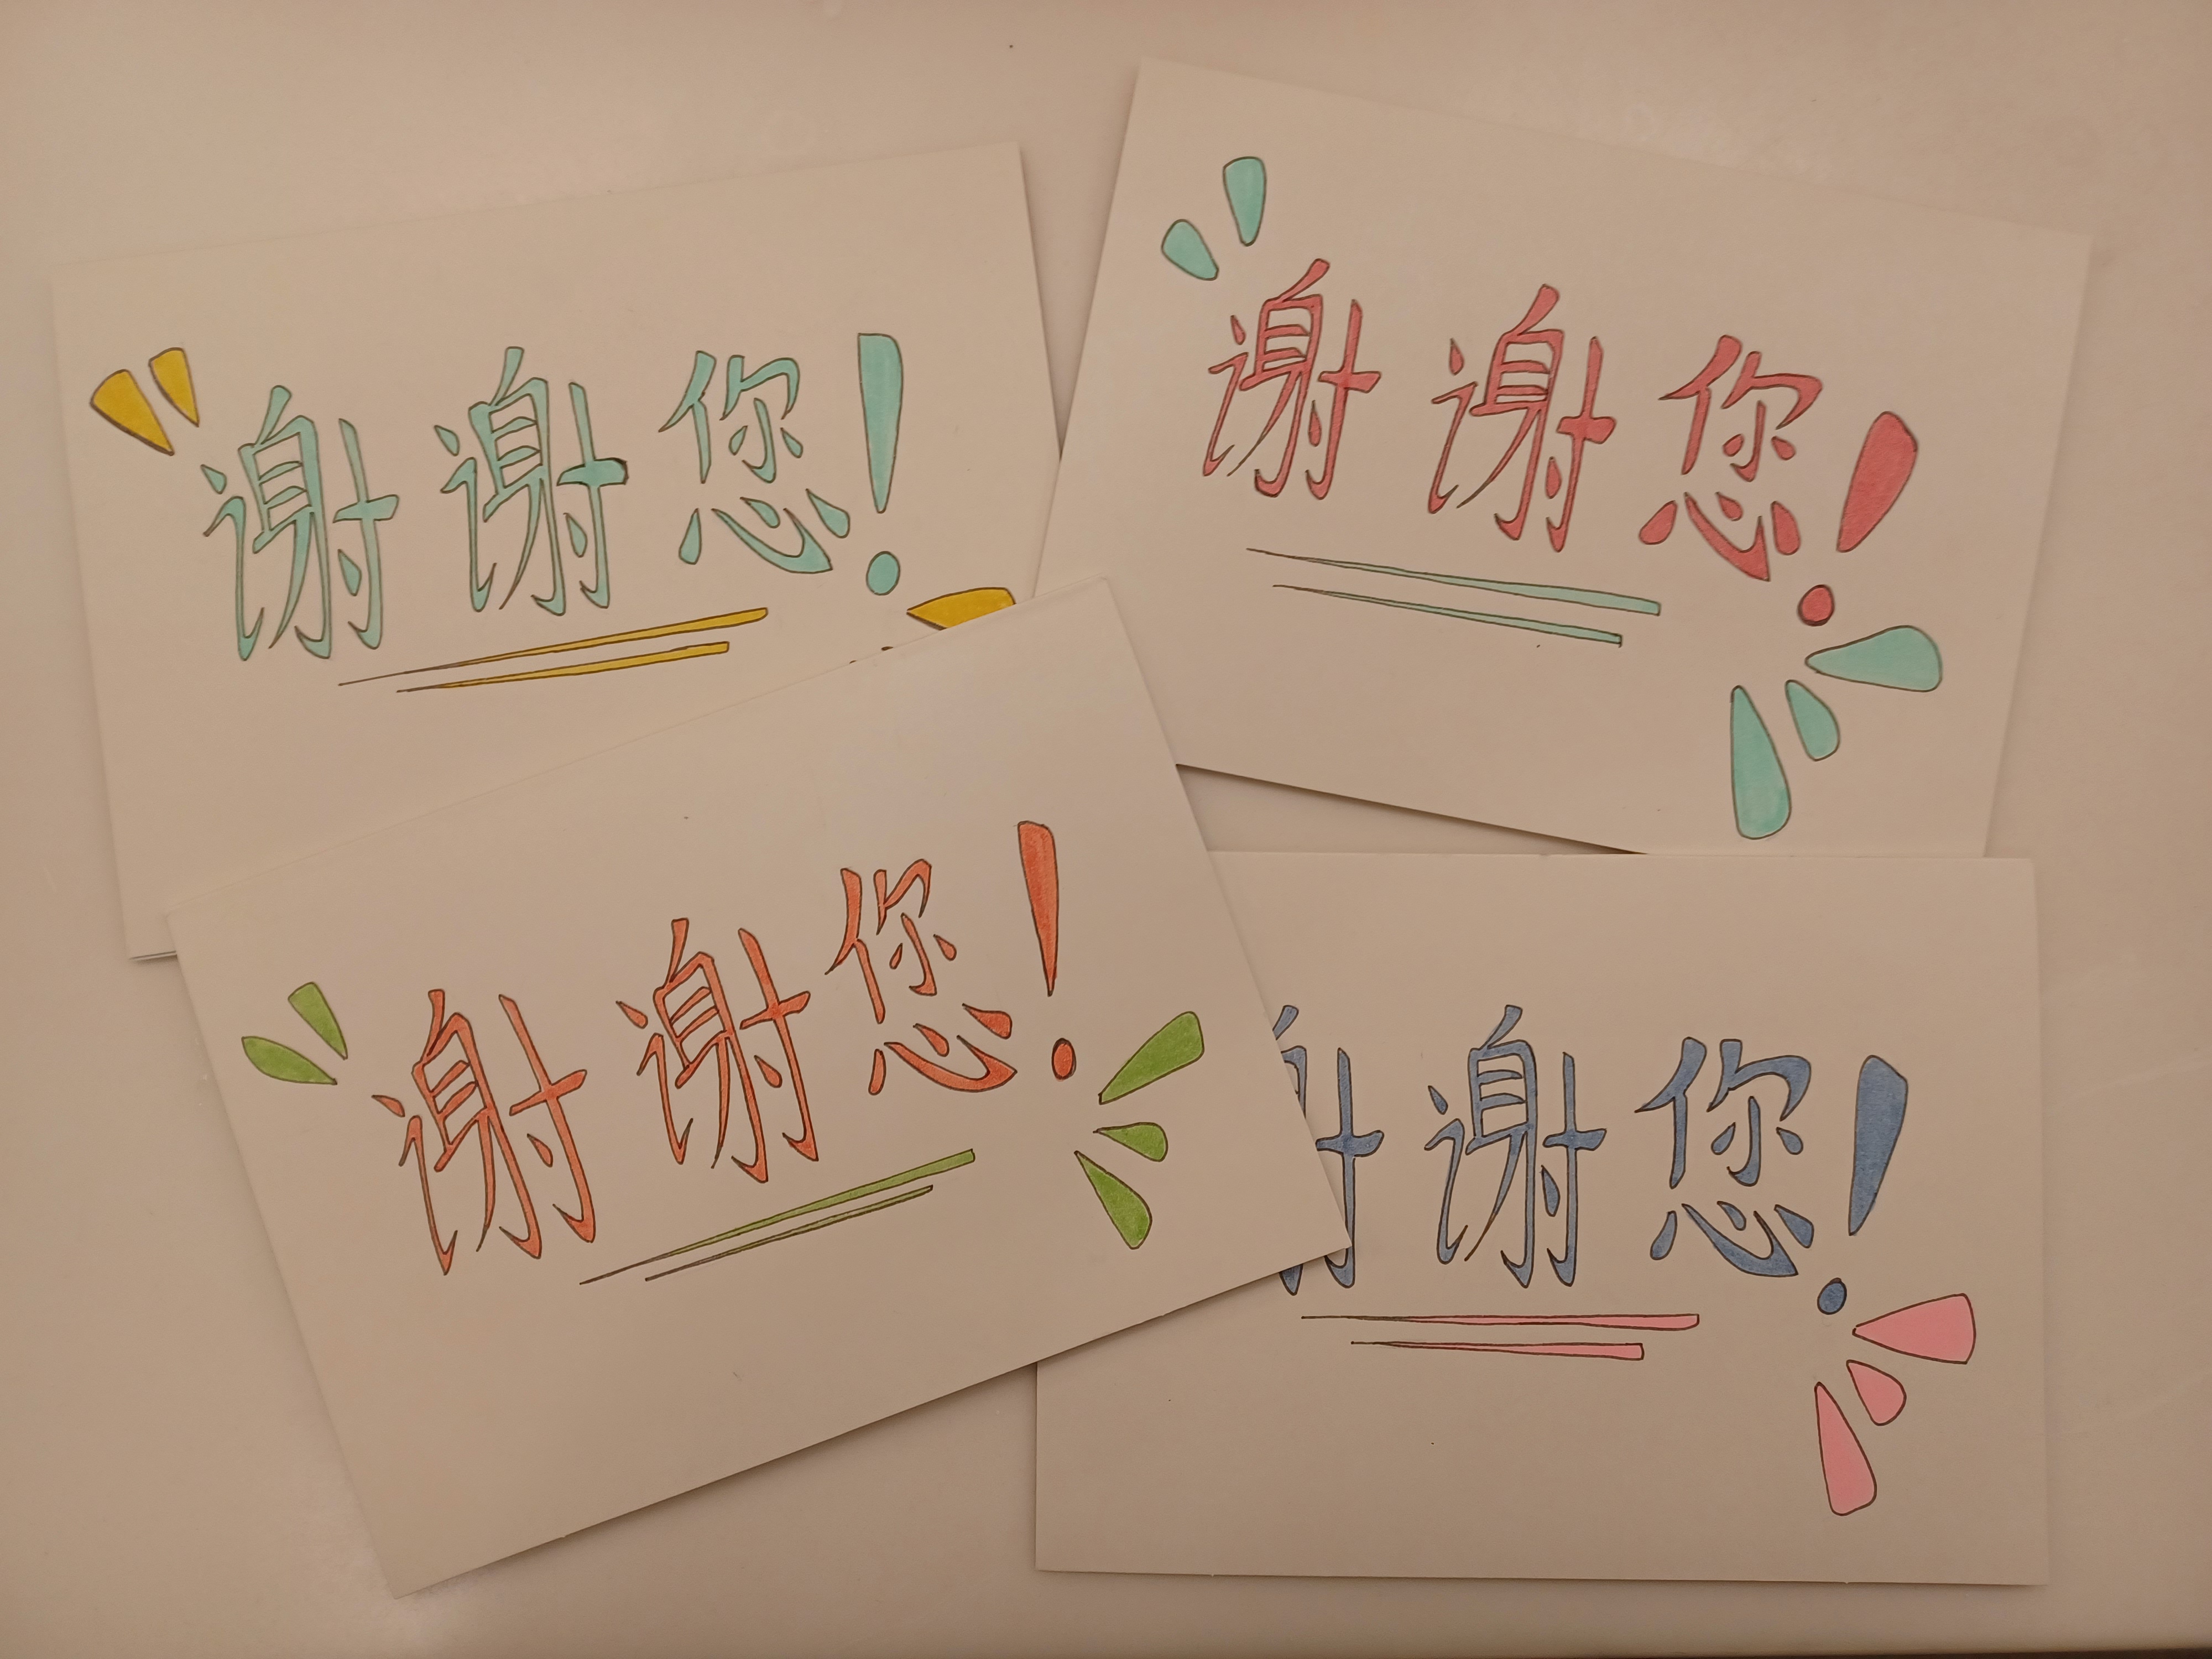 谢谢您!
谢谢您!
谢谢您!
谢您!